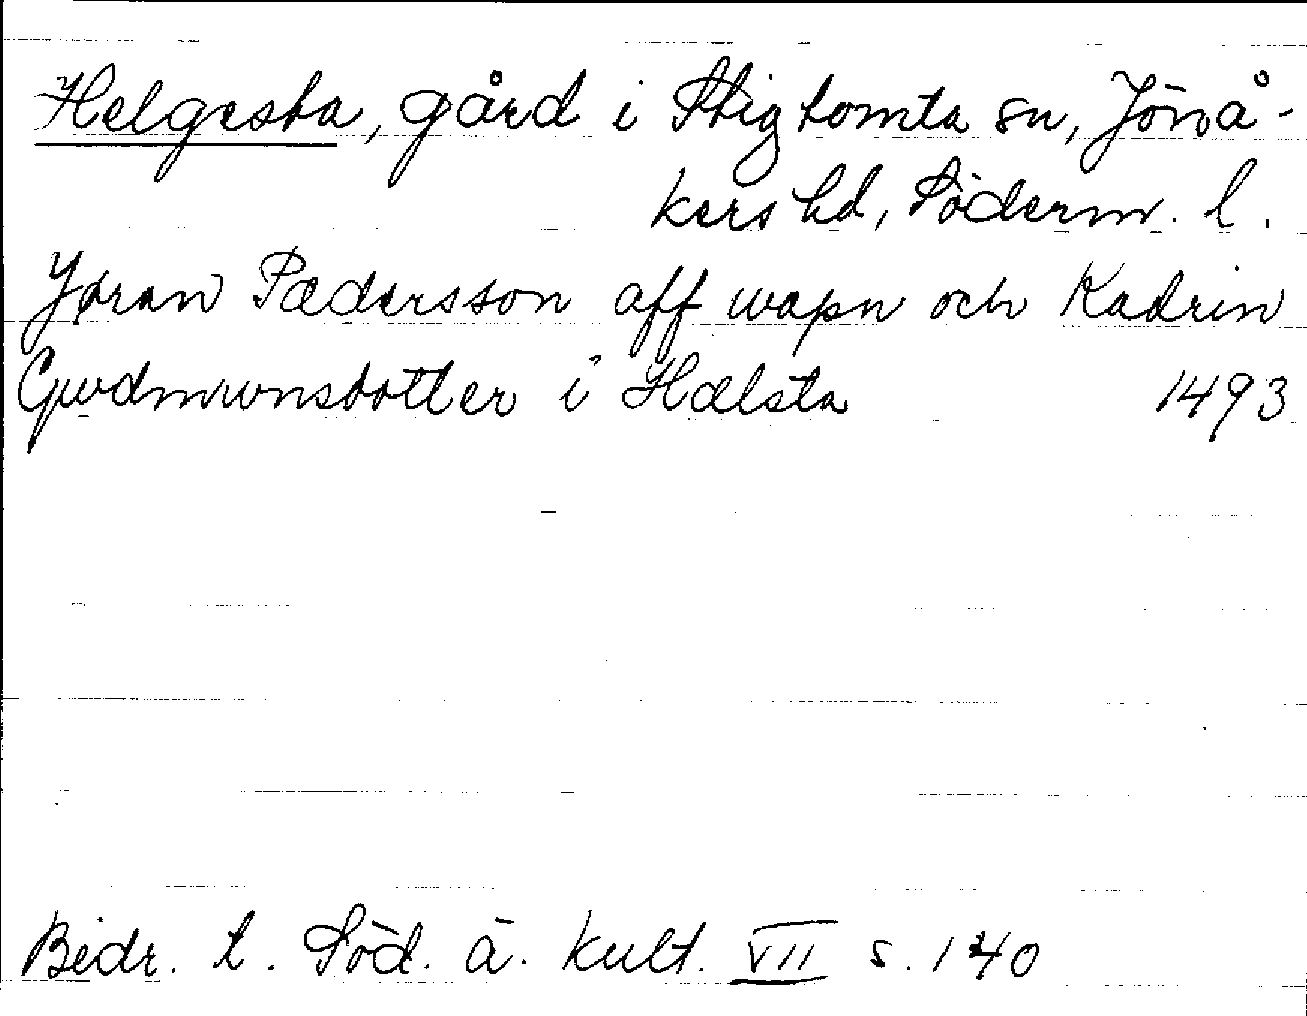 Helgesta, gård i Stigtomta sn, Jönå-
kers hd, Söderm. l.
Jøran Pædersson aff wapn och Kadrin
Gwdmwnsdotter i Hælsta 1493
Bidr. t. Söd. ä. kult. VII s. 140